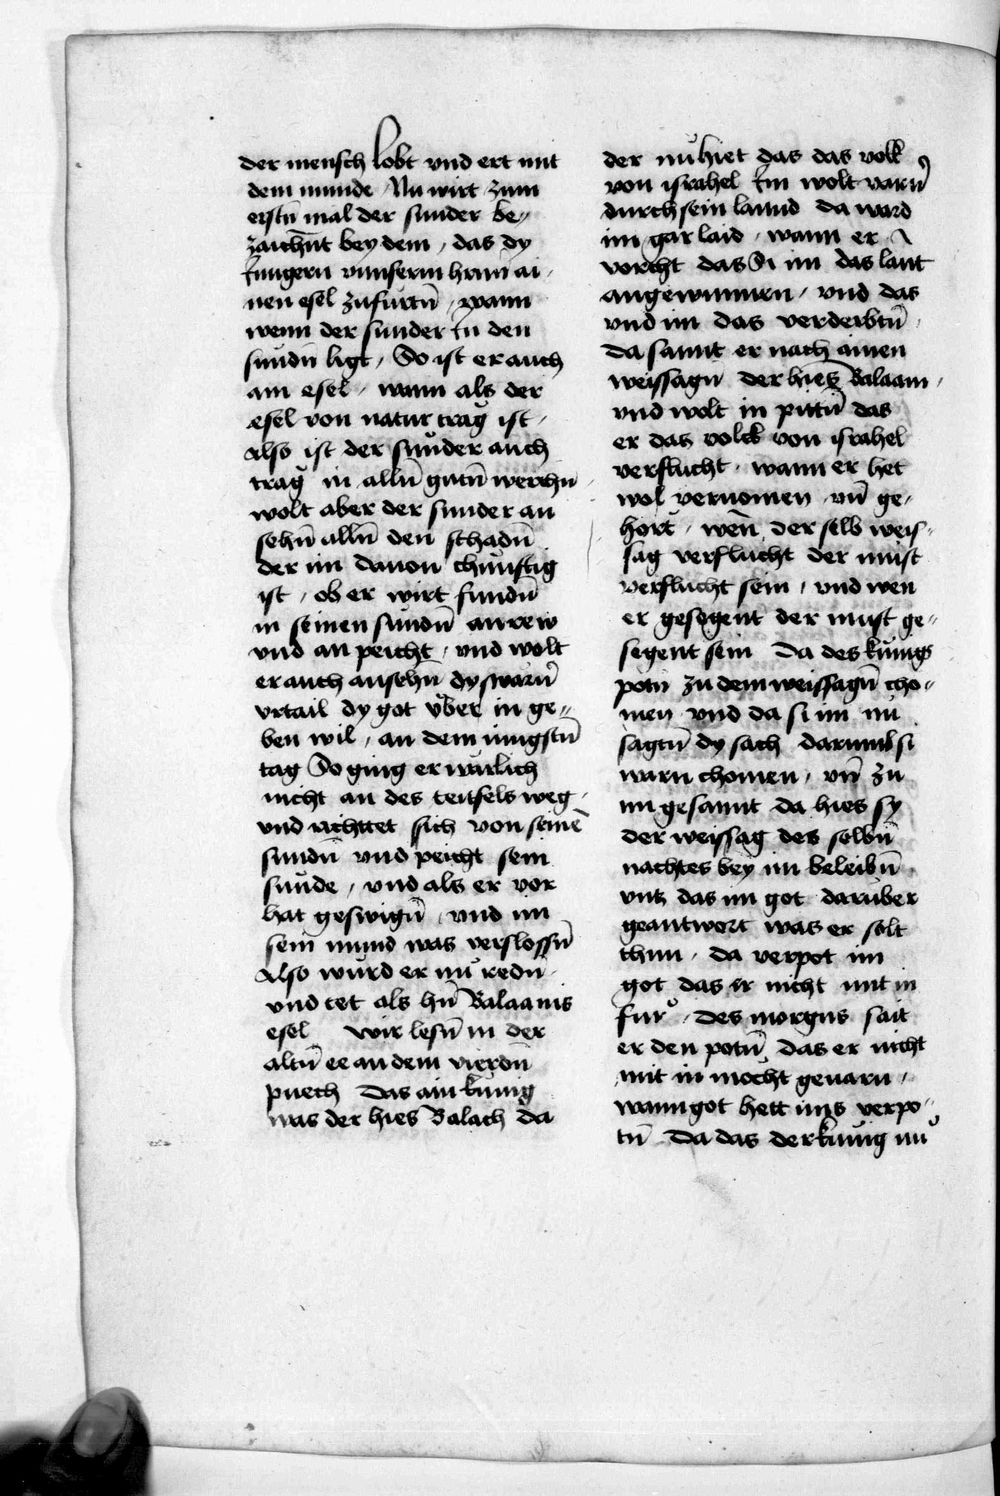 der mensch lobt vnd ert mit
dem munde Nu wirt zum
erstn̄ mal der sunder be⸗
zaichn̄t bey dem, das dy
Jungern vnnserm hran̄ ai,
nen esel zufurtn̄, wann
wenn der sunder Jn den
sundn̄ ligt, So ist er auch
am esel, wann als der
esel von natur trag ist,
also ist der sunder auch
trag in alln̄ gutn̄ werchn̄
wolt aber der sunder an
sehn̄ alln̄ den schadn̄
der im dauon chunftig
ist, ob er wirt fundn̄
in seinen sundn̄ an rew
vnd an peicht, vnd wolt
er auch ansehn̄ dy swarn̄
vrtail dy got vber in ge⸗
ben wil, an dem iungstn̄
tag So ging er warlich
nicht an des teufels weg,
vnd richttet sich von seinē
sundn̄ vnd peicht sein
sunde, vnd als er vor
hat geswign̄, vnd im
sein mund was verslossn̄
also wurd er nu redn̄,
vnd tet als hn̄ Balaams
esel wir lesn̄ in der
altn̄ ee an dem vierdn̄
puech Das ain kunig
was der hies Balach da
der nu hiet das das volk
von israhel Jm wolt varn̄
durch sein lannd da ward
im gar laid, wann er
vorcht das Si im das lant
angewunnen, vnd das
vnd im das verderbtn̄,
da sannt er nach ainen
weissagn̄ der hies Balaam,
vnd wolt in pittn̄ das
er das volck von israhel
verflucht, wann er het
wol vernomen vn̄ ge⸗
hort, wen̄ der selb weis⸗
sag verflucht der must
verflucht sein, vnd wen
er gesegent der must ge⸗
segent sein Da des kunigs
potn̄ zu dem weissagn̄ cho⸗
men vnd da si im nu
sagtn̄ dy sach darumb si
warn chomen, vn̄ zu
im gesannt da hies sy
der weissag des selbn̄
nachtes bey im beleibn̄
vntz das im got daruber
geantwort was er solt
thun, da verpot im
got das er nicht mit in
fur, des morgns sait
er den potn̄ das er nicht
mit in mocht geuarn,
wann got hett ims verpo⸗
tn̄ Da das der kunig nu